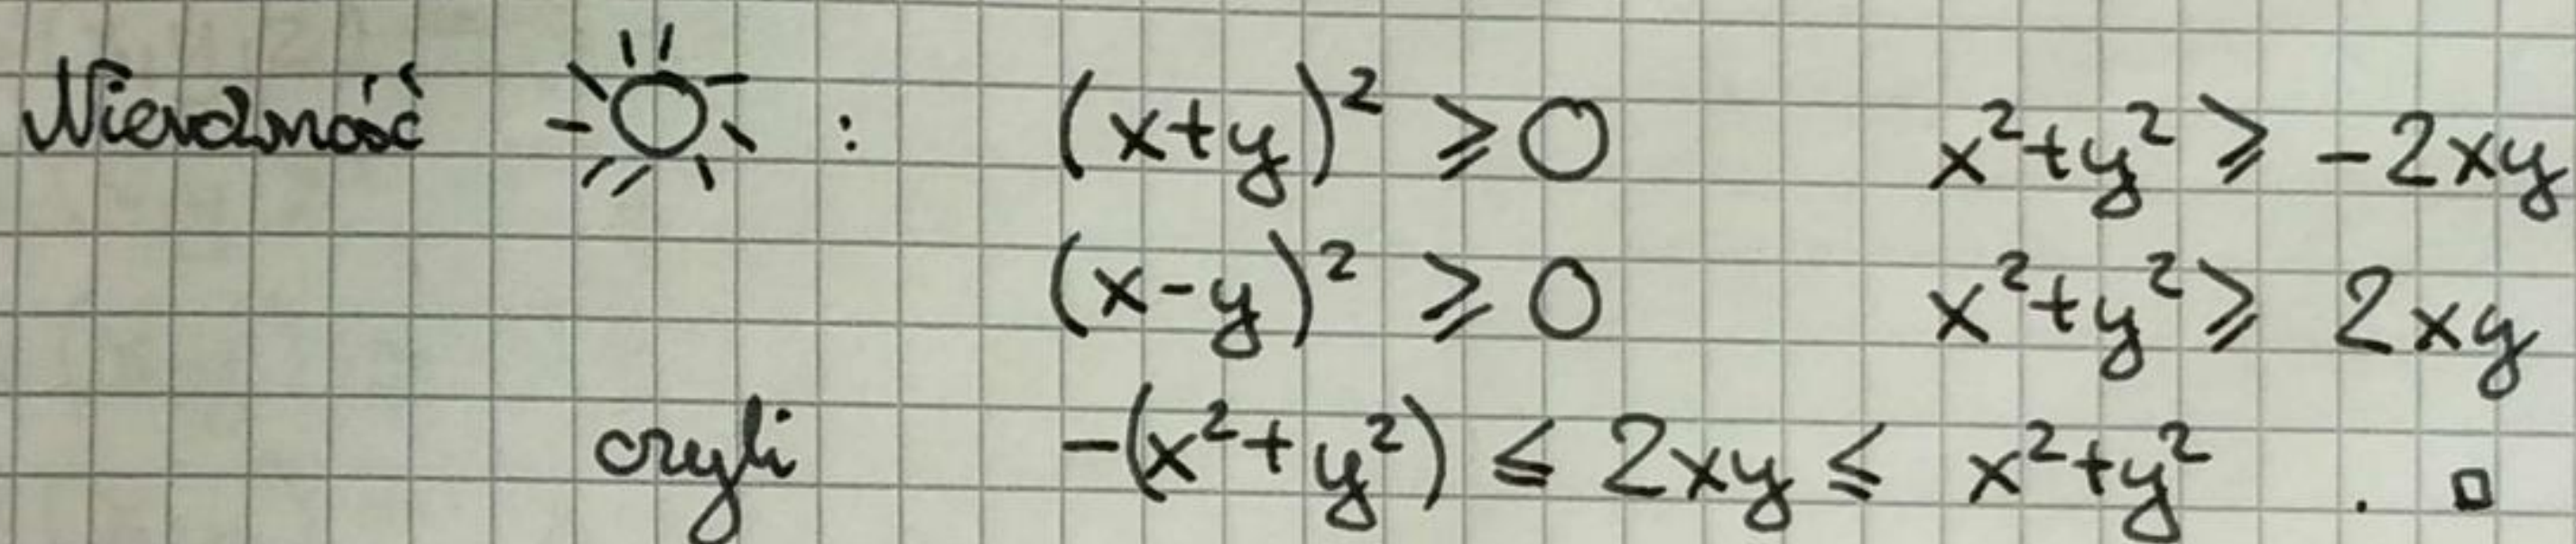 Nierówność ☼ : (x+y)² ⩾ 0 x²+y² ⩾ -2xy
(x-y)² ⩾ 0 x²+y² ⩾ 2xy
czyli -(x²+y²) ≤ 2xy ≤ x²+y² . □